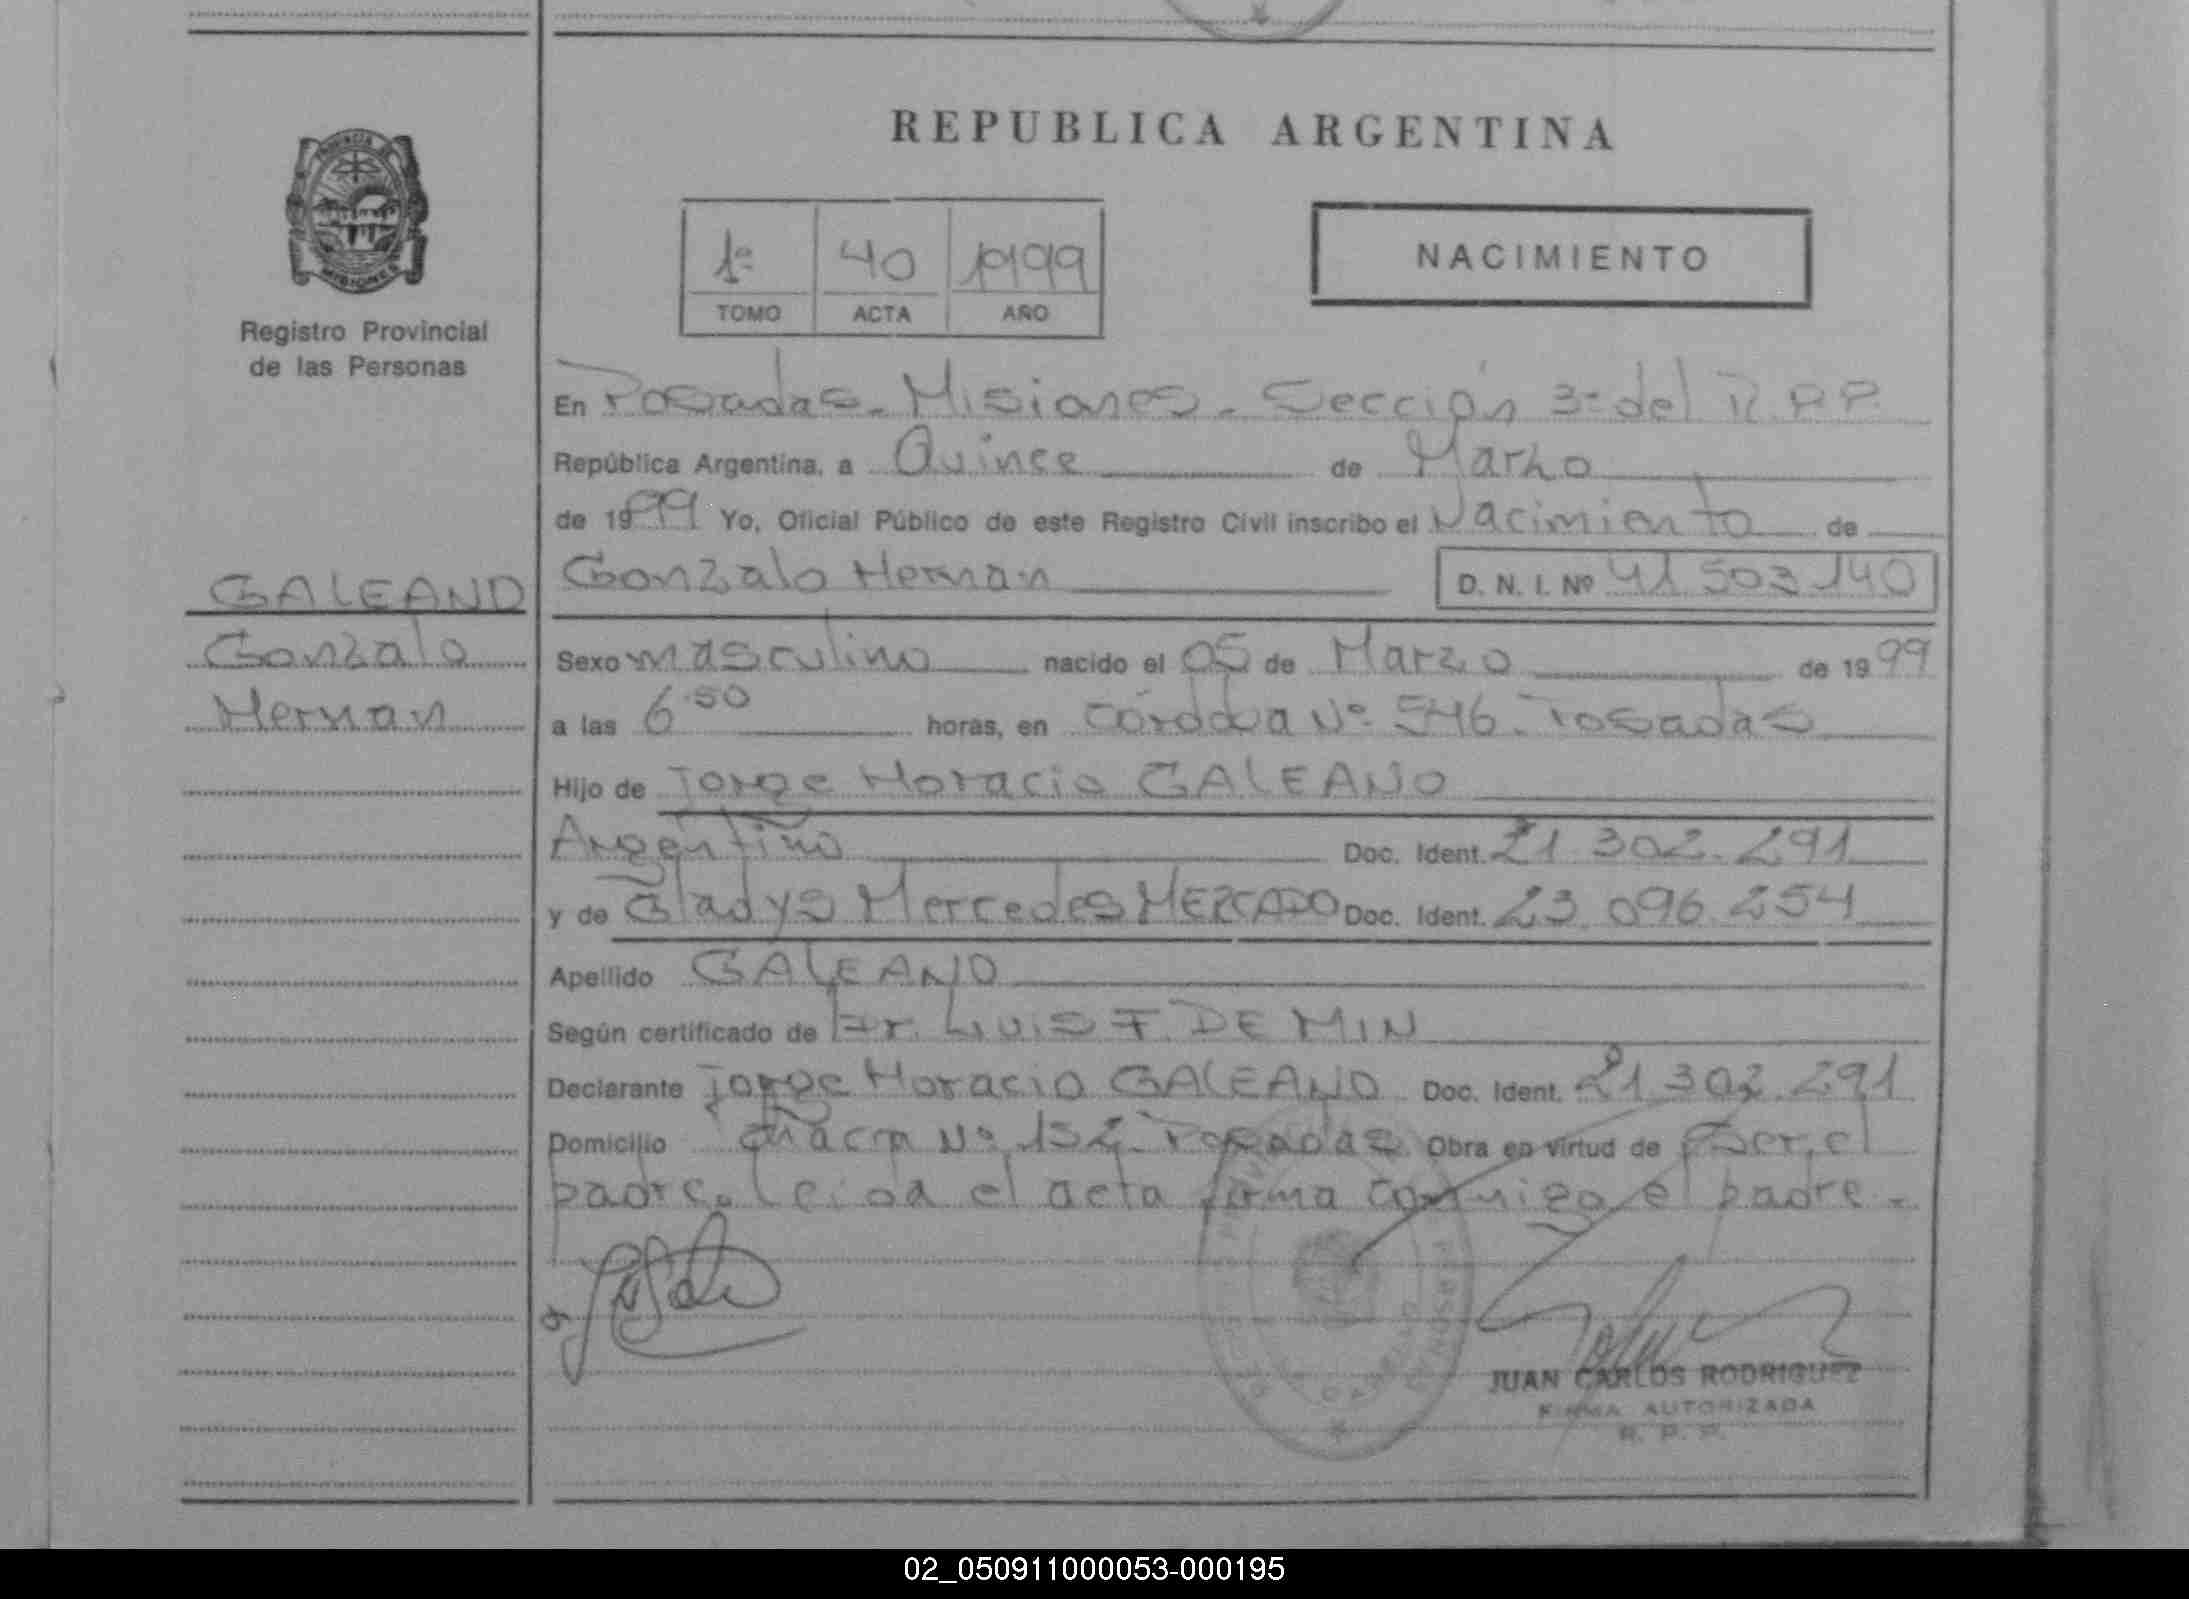 REPUBLICA ARGENTINA
1º 40 1999
TOMO ACTA AÑO
NACIMIENTO
Registro Provincial
de las Personas
En Posadas - Misiones - Sección 3ª del R.P.P.
República Argentina, a Quince de Marzo
de 1999 Yo, Oficial Público de este Registro Civil inscribo el Nacimiento de
GALEANO
Gonzalo
Hernan
Gonzalo Hernan D. N. I. Nº 41 503 140
Sexo masculino nacido el 05 de Marzo de 1999
a las 6.50 horas, en Córdoba Nº 546 - Posadas
Hijo de Jorge Horacio GALEANO
Argentino Doc. Ident. 21.302.291
y de Gladys Mercedes MERCADO Doc. Ident. 23.096.254
Apellido GALEANO
Según certificado de Dr. LUIS F. DE MIN
Declarante Jorge Horacio GALEANO Doc. Ident. 21.302.291
Domicilio Chacra Nº 152 - Posadas Obra en virtud de ser el
padre. Leida el acta firma conmigo el padre -
JUAN CARLOS RODRIGUEZ
FIRMA AUTORIZADA
R. P. P.
02_050911000053-000195